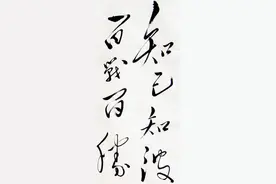 知己知彼
百戰百勝